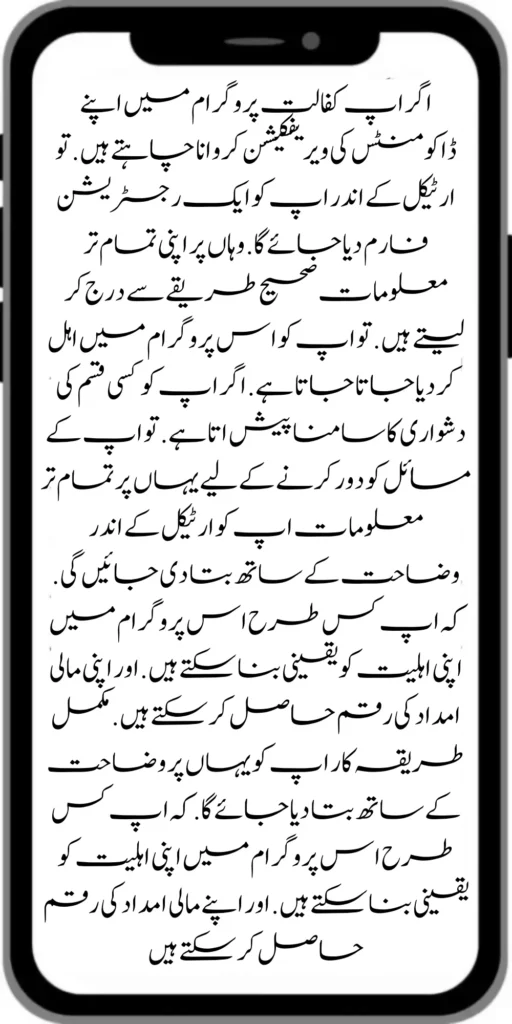 اگر اپ کفالت پروگرام میں اپنے
ڈاکومنٹس کی ویریفکیشن کروانا چاہتے ہیں. تو
ارٹیکل کے اندر اپ کو ایک رجسٹریشن
فارم دیا جائے گا. وہاں پر اپنی تمام تر
معلومات صحیح طریقے سے درج کر
لیتے ہیں. تو اپ کو اس پروگرام میں اہل
کر دیا جاتا جاتا ہے. اگر اپ کو کسی قسم کی
دشواری کا سامنا پیش اتا ہے. تو اپ کے
مسائل کو دور کرنے کے لیے یہاں پر تمام تر
معلومات اپ کو ارٹیکل کے اندر
وضاحت کے ساتھ بتا دی جائیں گی.
کہ اپ کس طرح اس پروگرام میں
اپنی اہلیت کو یقینی بنا سکتے ہیں. اور اپنی مالی
امداد کی رقم حاصل کر سکتے ہیں. مکمل
طریقہ کار اپ کو یہاں پر وضاحت
کے ساتھ بتا دیا جائے گا. کہ اپ کس
طرح اس پروگرام میں اپنی اہلیت کو
یقینی بنا سکتے ہیں. اور اپنے مالی امداد کی رقم
حاصل کر سکتے ہیں